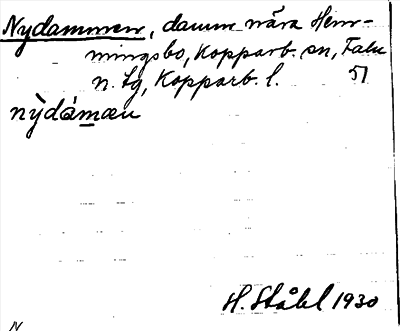 Nydammen, damm nära Hem-
mingsbo, Kopparb. sn, Falu
n. tg, Kopparb. l. 51
nỳdám̲æn
H. Ståhl 1930
N